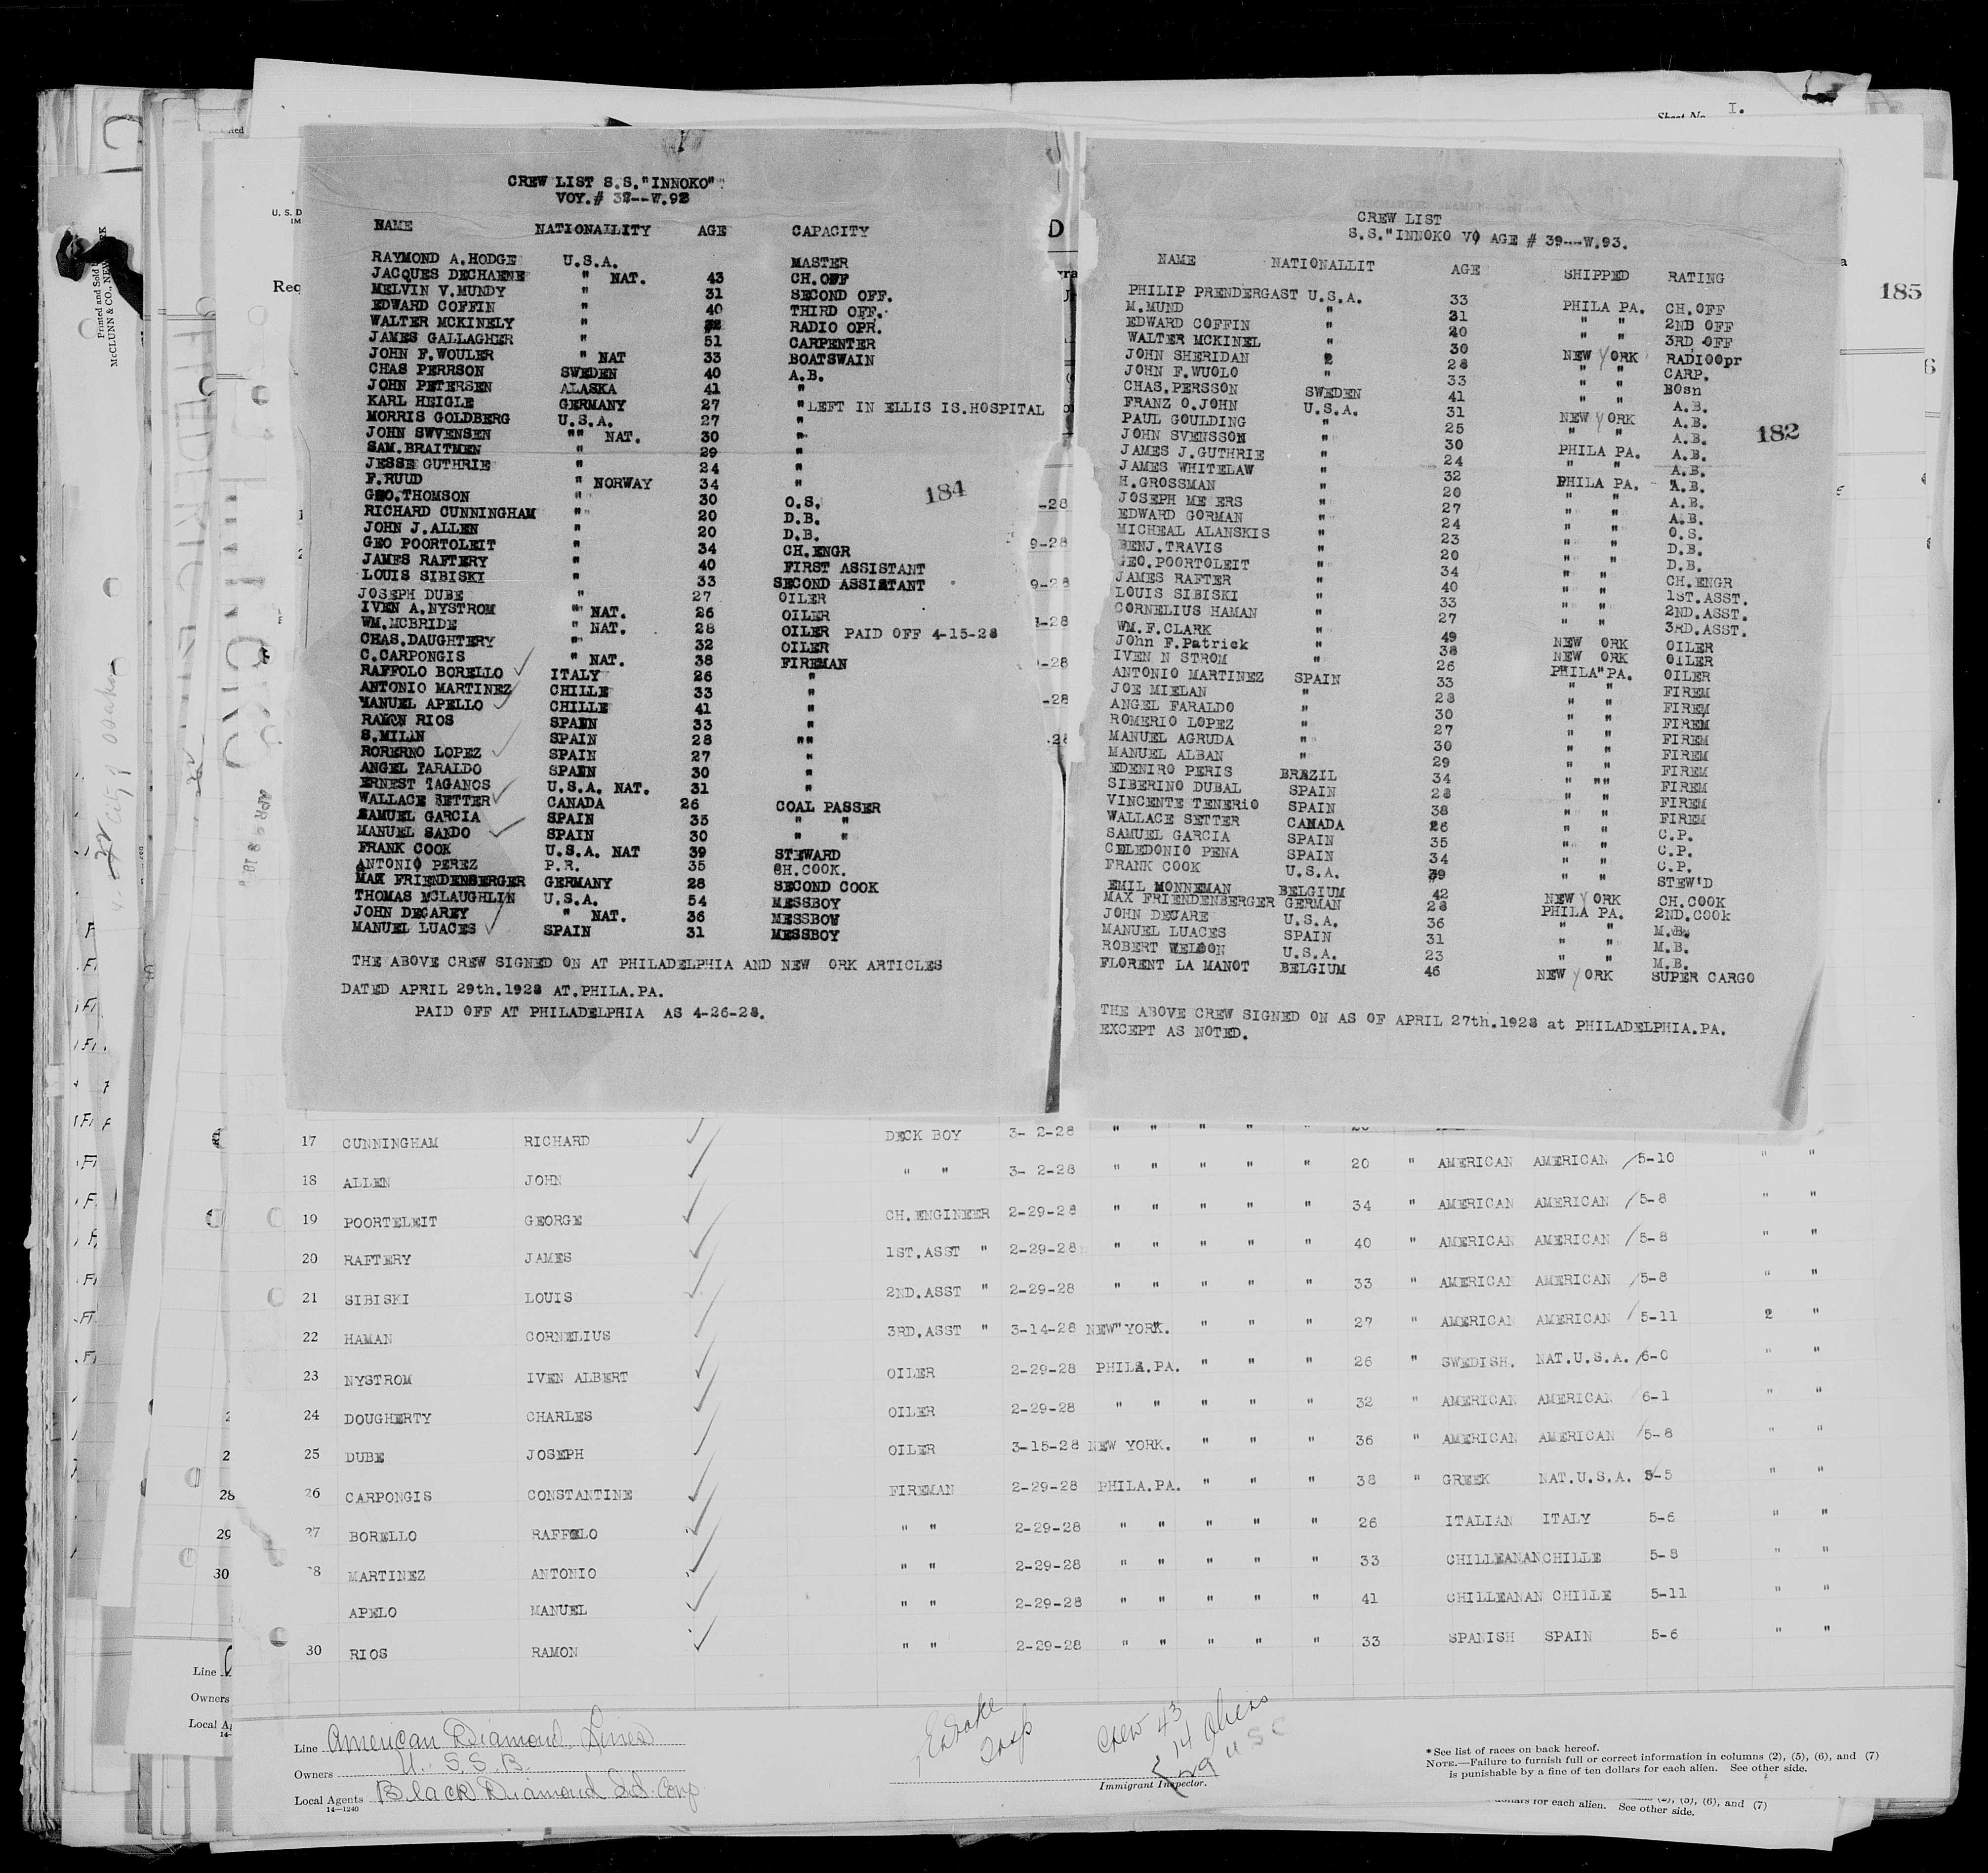 CREW LIST S.S."INNOKO"
VOY.# 38--W.92
NAME NATIONAILITY AGE CAPACITY
RAYMOND A.HODGE U.S.A. MASTER
JACQUES DECHAENE " NAT. 43 CH.OFF
MELVIN V.MUNDY " 31 SECOND OFF.
EDWARD COFFIN " 40 THIRD OFF.
WALTER MCKINELY " RADIO OPR.
JAMES GALLAGHER " 51 CARPENTER
JOHN F.WOULER " NAT 33 BOATSWAIN
CHAS PERRSON SWEDEN 40 A.B.
JOHN PETERSEN ALASKA 41 "
KARL HEIGLE GERMANY 27 " LEFT IN ELLIS IS.HOSPITAL
MORRIS GOLDBERG U.S.A. 27 "
JOHN SWVENSEN "" NAT. 30 "
SAM.BRAITMEN " 29 "
JESSE GUTHRIE " 24 "
F.RUUD " NORWAY 34 "
GEO.THOMSON " 30 O.S.
RICHARD CUNNINGHAM " 20 D.B.
JOHN J.ALLEN " 20 D.B.
GEO POORTOLEIT " 34 CH.ENGR
JAMES RAFTERY " 40 FIRST ASSISTANT
LOUIS SIBISKI " 33 SECOND ASSISTANT
JOSEPH DUBE " 27 OILER
IVEN A.NYSTROM " NAT. 26 OILER
WM.MCBRIDE " NAT. 28 OILER PAID OFF 4-15-28
CHAS.DAUGHTERY " 32 OILER
C.CARPONGIS " NAT. 38 FIREMAN
RAFFOLO BORELLO ITALY 26 "
ANTONIO MARTINEZ CHILLE 33 "
MANUEL APELLO CHILLE 41 "
RAMON RIOS SPAIN 33 "
S.MILAN SPAIN 28 ""
RORERNO LOPEZ SPAIN 27 "
ANGEL FARALDO SPAIN 30 "
ERNEST PAGANOS U.S.A. NAT. 31 "
WALLACE SETTER CANADA 26 COAL PASSER
SAMUEL GARCIA SPAIN 35 " "
MANUEL SANDO SPAIN 30 " "
FRANK COOK U.S.A. NAT 39 STEWARD
ANTONIO PEREZ P.R. 35 CH.COOK.
MAX FRIENDENBERGER GERMANY 28 SECOND COOK
THOMAS MCLAUGHLIN U.S.A. 54 MESSBOY
JOHN DECAREY " NAT. 36 MESSBOW
MANUEL LUACES SPAIN 31 MESSBOY
THE ABOVE CREW SIGNED ON AT PHILADELPHIA AND NEW ORK ARTICLES
DATED APRIL 29th.1928 AT.PHILA.PA.
PAID OFF AT PHILADELPHIA AS 4-26-28.
184
CREW LIST
S.S."INNOKO VO AGE # 39---W.93.
NAME NATIONALLIT AGE SHIPPED RATING
PHILIP PRENDERGAST U.S.A. 33 PHILA PA. CH.OFF
M.MUND " 31 " " 2ND OFF
EDWARD COFFIN " 40 " " 3RD OFF
WALTER MCKINEL " 30 NEW YORK RADIOOpr
JOHN SHERIDAN 2 28 " " CARP.
JOHN F.WUOLO " 33 " " BOsn
CHAS.PERSSON SWEDEN 41 " " A.B.
FRANZ O.JOHN U.S.A. 31 NEW YORK A.B.
PAUL GOULDING " 25 " " A.B.
JOHN SVENSSON " 30 PHILA PA. A.B.
JAMES J.GUTHRIE " 24 " " A.B.
JAMES WHITELAW " 32 PHILA PA. A.B.
H.GROSSMAN " 20 " " A.B.
JOSEPH ME ERS " 27 " " A.B.
EDWARD GORMAN " 24 " " O.S.
MICHEAL ALANSKIS " 23 " " D.B.
BENJ.TRAVIS " 20 " " D.B.
GEO.POORTOLEIT " 34 " " CH.ENGR
JAMES RAFTER " 40 " " 1ST.ASST.
LOUIS SIBISKI " 33 " " 2ND.ASST.
CORNELIUS HAMAN " 27 " " 3RD.ASST.
WM.F.CLARK " 49 NEW ORK OILER
John F.Patrick " 38 NEW ORK OILER
IVEN N STROM " 26 PHILA"PA. OILER
ANTONIO MARTINEZ SPAIN 33 " " FIREM
JOE MIELAN " 28 " " FIREM
ANGEL FARALDO " 30 " " FIREM
ROMERIO LOPEZ " 27 " " FIREM
MANUEL AGRUDA " 30 " " FIREM
MANUEL ALBAN " 29 " " FIREM
EDENIRO PERIS BRAZIL 34 " "" FIREM
SIBERINO DUBAL SPAIN 28 " " FIREM
VINCENTE TENERiO SPAIN 38 " " FIREM
WALLACE SETTER CANADA 26 " " C.P.
SAMUEL GARCIA SPAIN 35 " " C.P.
CELEDONIO PENA SPAIN 34 " " C.P.
FRANK COOK U.S.A. 39 " " STEW'D
EMIL MONNEMAN BELGIUM 42 NEW YORK CH.COOK
MAX FRIENDENBERGER GERMAN 28 PHILA PA. 2ND.COOk
JOHN DECARE U.S.A. 36 " " M.B.
MANUEL LUACES SPAIN 31 " " M.B.
ROBERT WELDON U.S.A. 23 " " M.B.
FLORENT LA MANOT BELGIUM 46 NEW YORK SUPER CARGO
THE ABOVE CREW SIGNED ON AS OF APRIL 27th.1928 at PHILADELPHIA.PA.
EXCEPT AS NOTED.
182
185
Sheet No. I.
Printed and Sold by
McCLUNN & CO., NEW YORK
17 CUNNINGHAM RICHARD DECK BOY 3- 2-28 " " " " "
18 ALLEN JOHN " " 3- 2-28 " " " " " 20 " AMERICAN AMERICAN 5-10 " "
19 POORTELEIT GEORGE CH.ENGINEER 2-29-28 " " " " " 34 " AMERICAN AMERICAN 5-8 " "
20 RAFTERY JAMES 1ST.ASST " 2-29-28 " " " " " 40 " AMERICAN AMERICAN 5-8 " "
21 SIBISKI LOUIS 2ND.ASST " 2-29-28 " " " " " 33 " AMERICAN AMERICAN 5-8 " "
22 HAMAN CORNELIUS 3RD.ASST " 3-14-28 NEW"YORK. " " " 27 " AMERICAN AMERICAN 5-11 2 "
23 NYSTROM IVEN ALBERT OILER 2-29-28 PHILA.PA. " " " 26 " SWEDISH. NAT.U.S.A. 6-0 " "
24 DOUGHERTY CHARLES OILER 2-29-28 " " " " " 32 " AMERICAN AMERICAN 6-1 " "
25 DUBE JOSEPH OILER 3-15-28 NEW YORK. " " " 36 " AMERICAN AMERICAN 5-8 " "
26 CARPONGIS CONSTANTINE FIREMAN 2-29-28 PHILA.PA. " " " 38 " GREEK NAT.U.S.A. 5-5 " "
27 BORELLO RAFFELO " " 2-29-28 " " " " " 26 ITALIAN ITALY 5-6 " "
28 MARTINEZ ANTONIO " " 2-29-28 " " " " " 33 CHILLEANAN CHILLE 5-8 " "
APELO MANUEL " " 2-29-28 " " " " " 41 CHILLEANAN CHILLE 5-11 " "
30 RIOS RAMON " " 2-29-28 " " " " " 33 SPANISH SPAIN 5-6 " "
Line American Diamond Lines
Owners U.S.S.B.
Local Agents Black Diamond SS. Corp
14—1240
Crew 43
14 Aliens
29 U S C
Immigrant Inspector.
* See list of races on back hereof.
NOTE.—Failure to furnish full or correct information in columns (2), (5), (6), and (7)
is punishable by a fine of ten dollars for each alien. See other side.
(5), (6), and (7)
for each alien. See other side.
Line
Owners